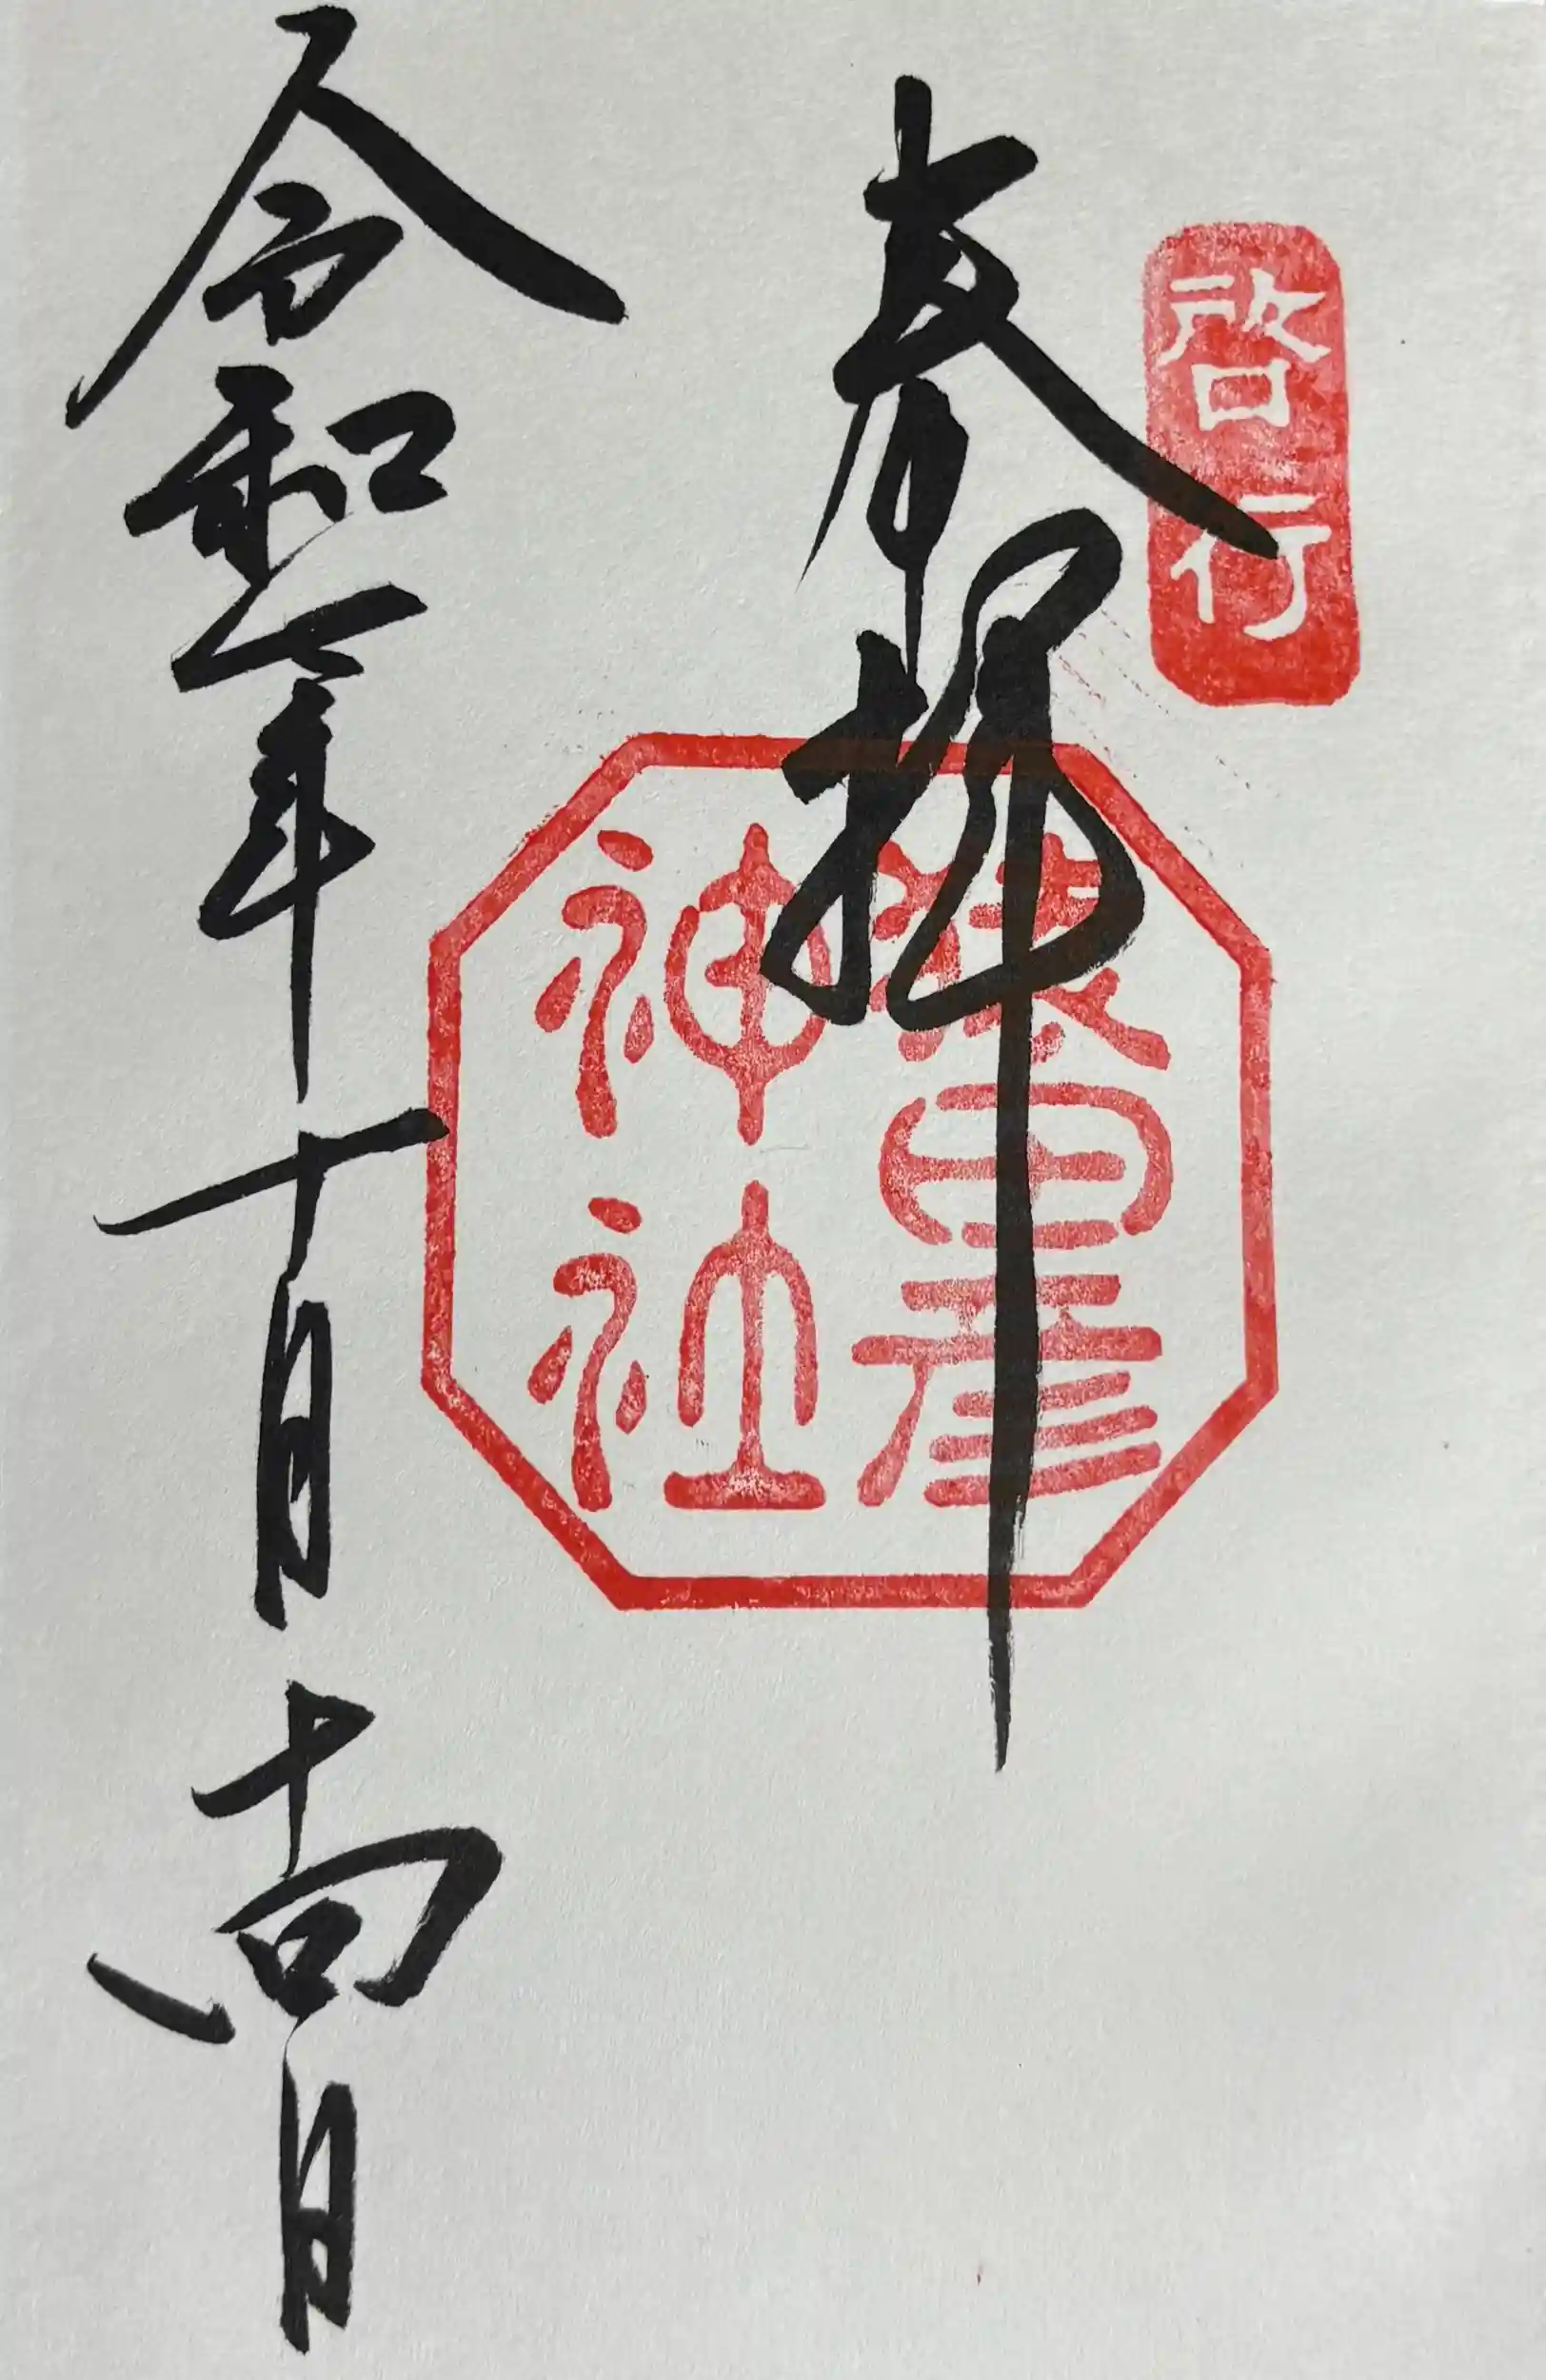 啓行
奉拝
猿田彦
神社
令和二年十月十四日